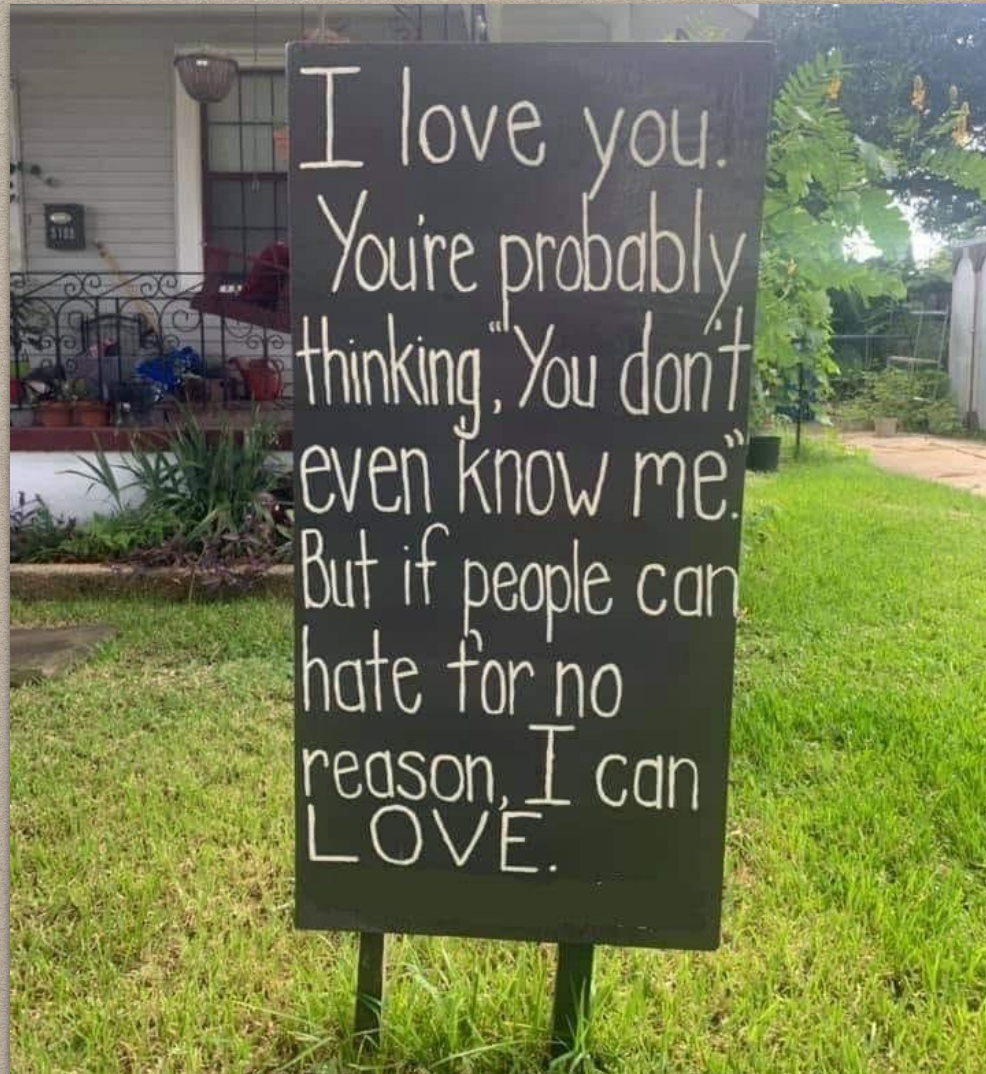 I love you.
You're probably
thinking, "You don't
even know me".
But if people can
hate for no
reason, I can
LOVE.